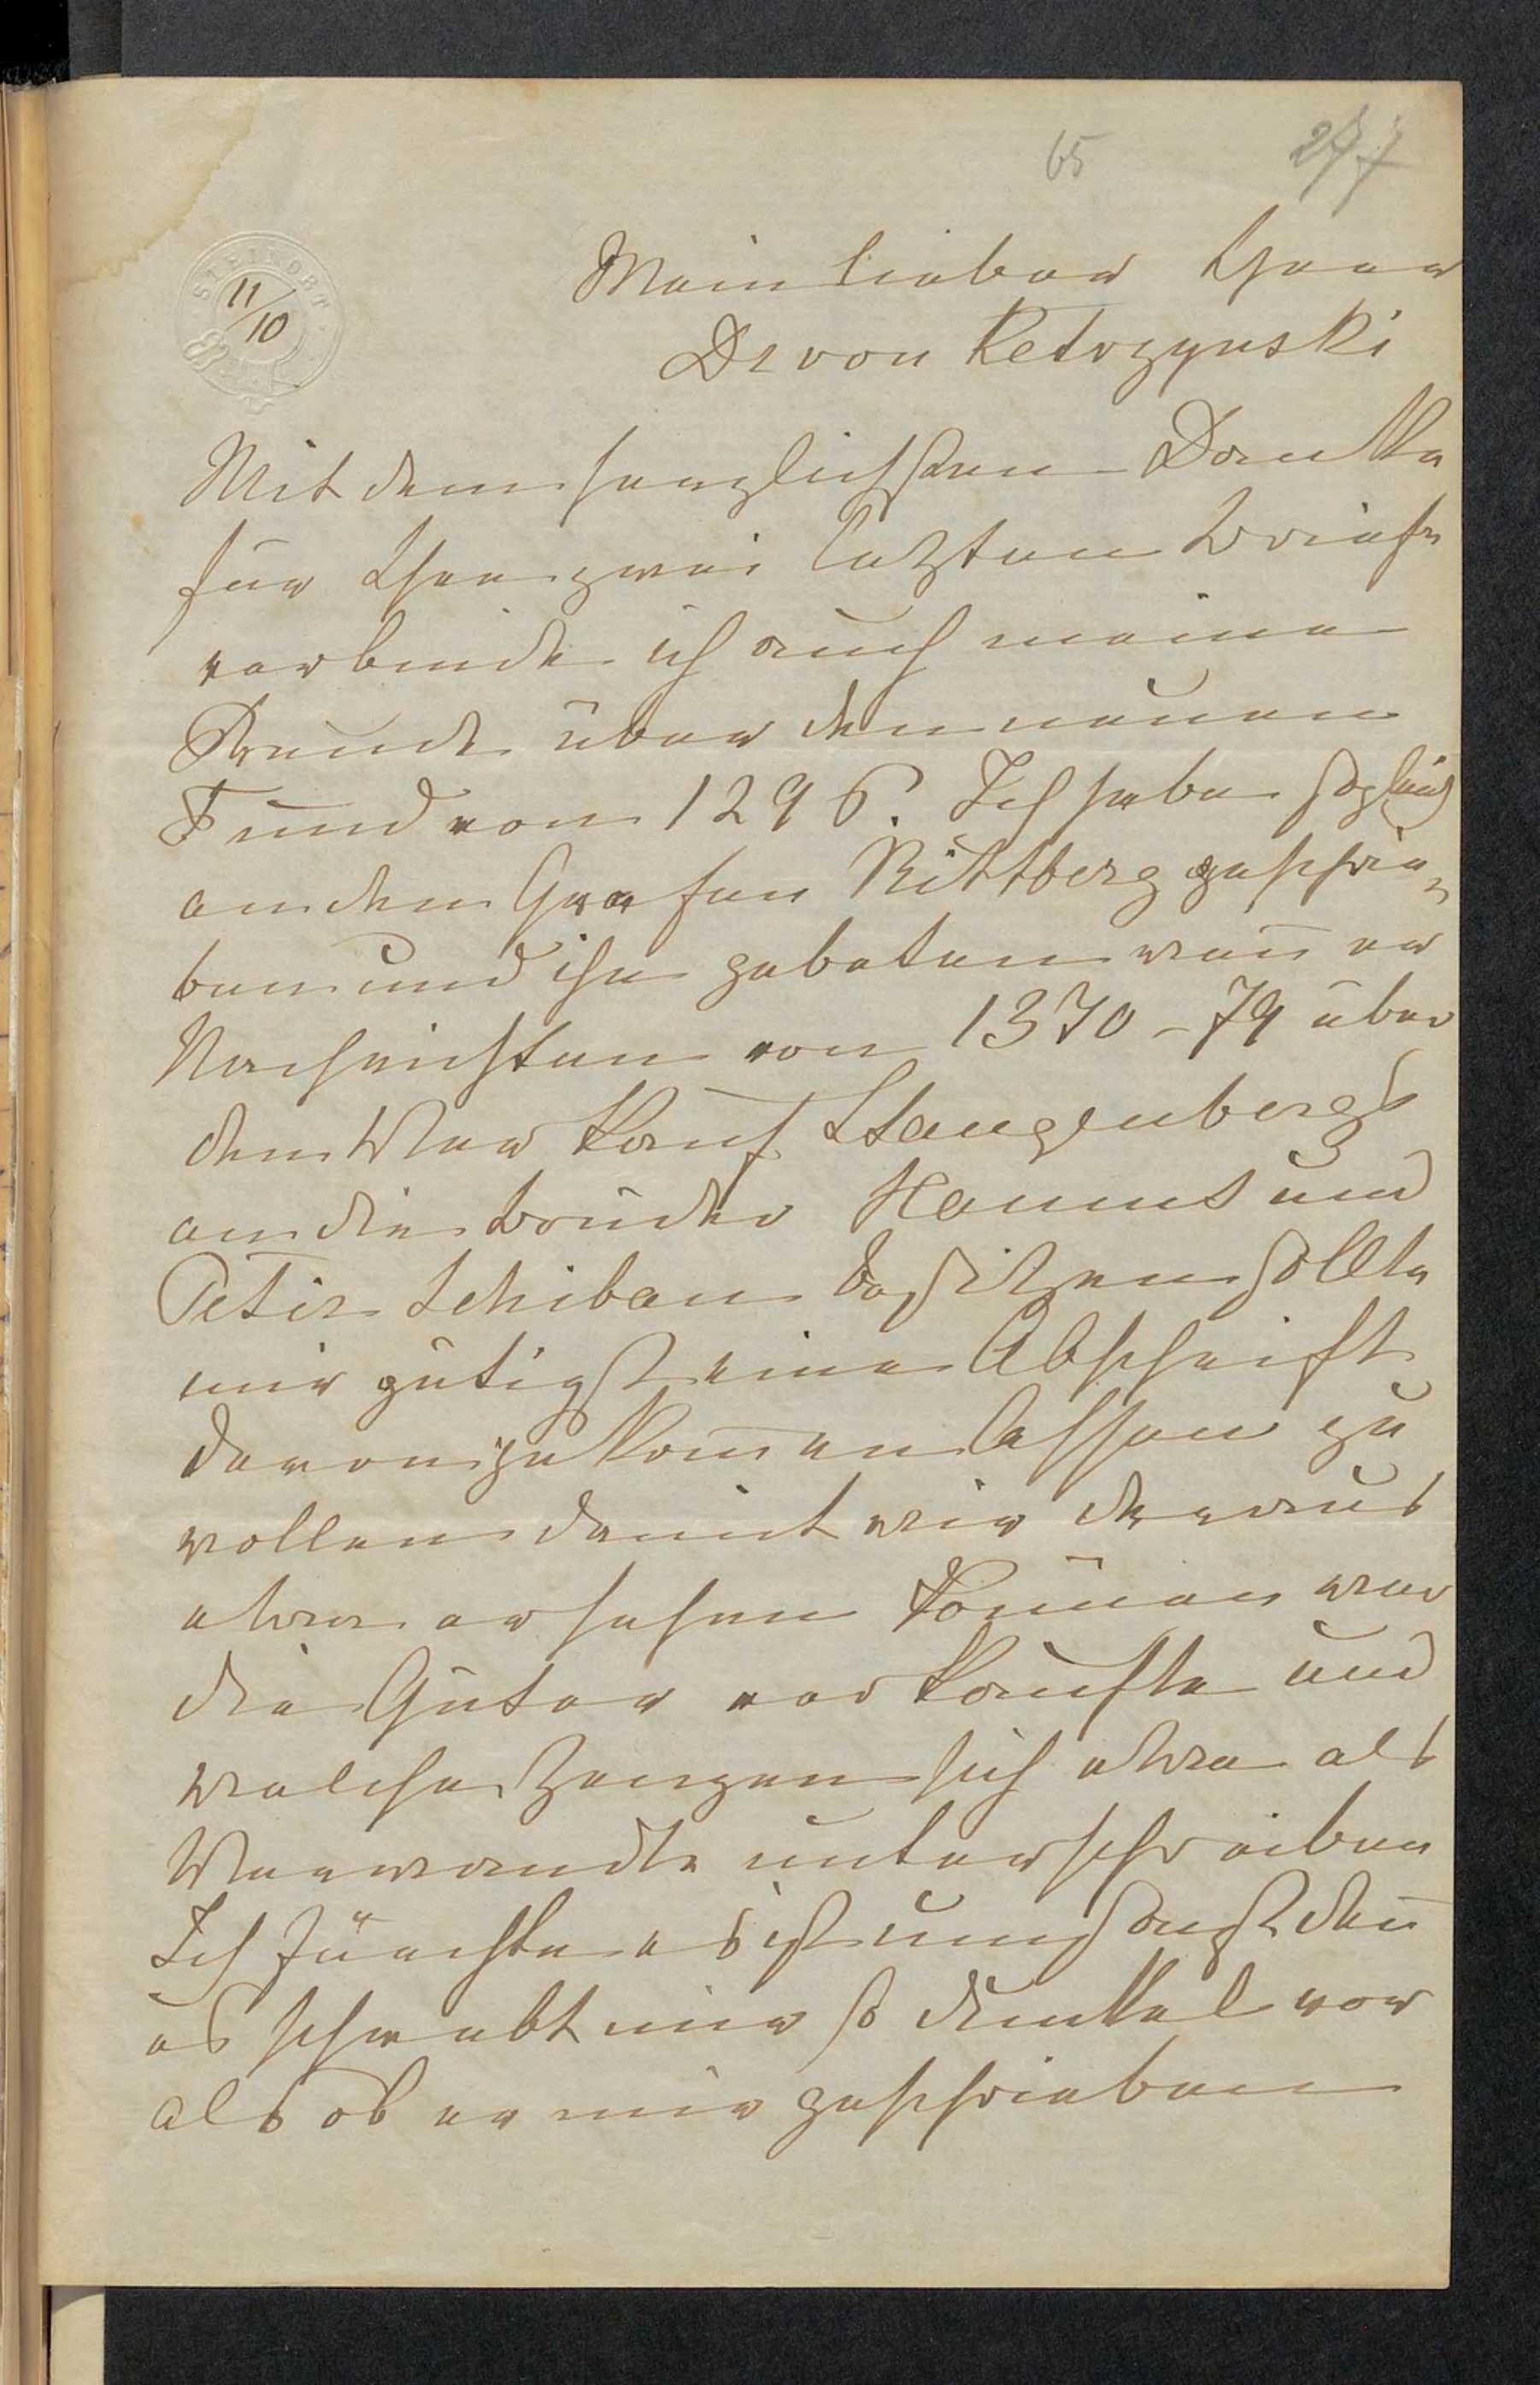 65 277
STEINORT
11/10
Mein lieber Herr
Dr von Ketrzynski
Mit dem herzlichsten Danke
für Ihre zwei letzten Briefe
verbinde ich auch meine
Freude über den neuen
Fund von 1296. Ich habe sogleich
an den Grafen Rittberg geschrie-
ben und ihn gebeten wen̄ er
Nachrichten von 1370-79 über
den Verkauf Stangenbergs
an die Brüder Hanns und
Peter Schiban besitzen sollte
mir gütigst eine Abschrift
davon zukom̄en lassen zu
wollen damit wir daraus
etwa ersehen kön̄en wer
die Güter verkaufte und
welche Zeugen sich etwa als
Verwandte unterschreiben
Ich fürchte es ist umsonst den̄
es schwebt mir so dunkel vor
als ob er mir geschrieben